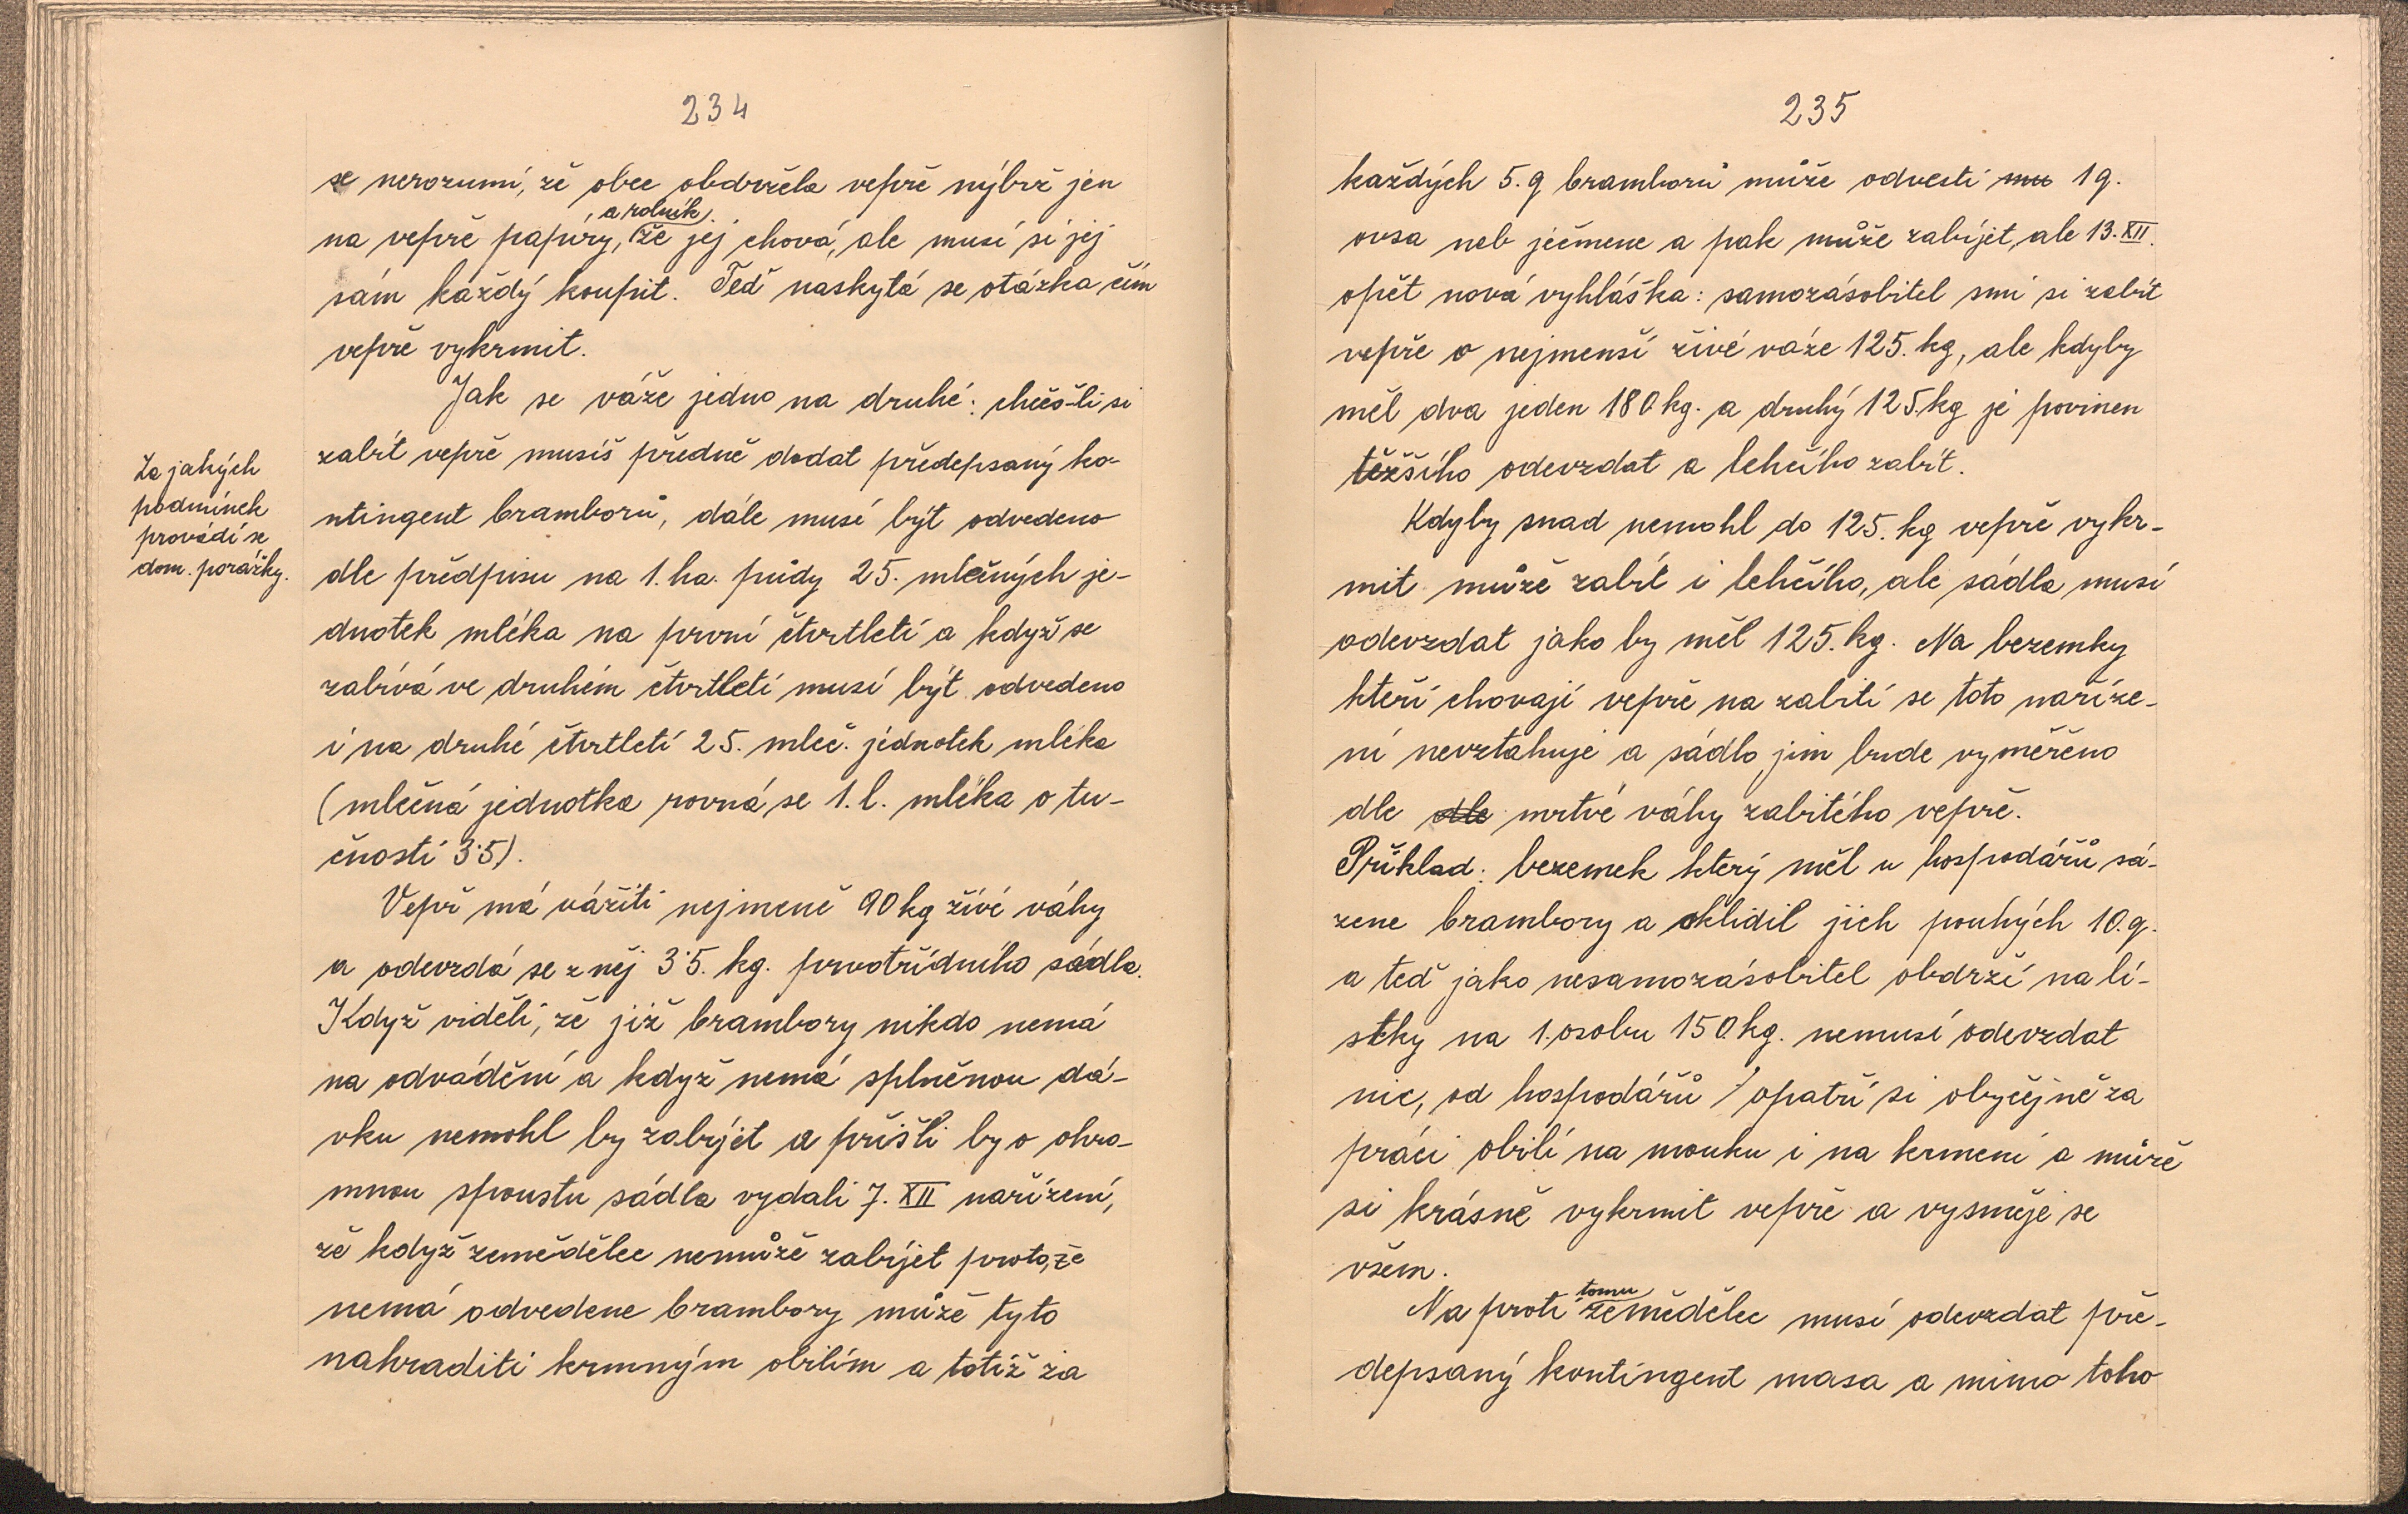 234
se nerozumí, že obec obdržela vepře nýbrž jen
a rolník
na vepře papíry, že jej chová, ale musí si jej
sám každý koupit. Teď naskytá se otázka čím
vepře vykrmit.
Jak se váže jedno na druhé: chceš-li si
zabít vepře musíš předně dodat předepsaný ko-
ntingent bramborů, dále musí být odvedeno
dle předpisu na 1. ha. půdy 25. mléčných je-
dnotek mléka na první čtvrtletí a když se
zabívá ve druhém čtvrtletí musí být odvedeno
i na druhé čtvrtletí 25. mleč. jednotek mléka
(mlečná jednotka rovná se 1. l. mléka o tu-
čnosti 3·5).
Za jakých
podmínek
provádí se
dom. porážky.
Vepř má vážiti nejmeně 90 kg živé váhy
a odevzdá se z něj 3·5. kg. prvotřídního sádla.
Když viděli, že již brambory nikdo nemá
na odvádění a když nemá splněnou dá-
vku nemohl by zabíjet a přišli by o ohro-
mnou spoustu sádla vydali 7. XII nařízení,
že když zemědělec nemůže zabíjet proto, že
nemá odvedene brambory může tyto
nahraditi krmným obilím a totiž za
235
každých 5. q bramborů může odvesti mu 1 q.
ovsa neb ječmene a pak může zabíjet, ale 13. XII.
opět nová vyhláška: samozásobitel smí si zabít
vepře o nejmenší živé váze 125. kg, ale kdyby
měl dva jeden 180 kg. a druhý 125. kg je povinen
těžšího odevzdat a lehčího zabít.
Kdyby snad nemohl do 125. kg vepře vykr-
mit může zabít i lehčího, ale sádla musí
odevzdat jako by měl 125. kg. Na bezemky
kteří chovají vepře na zabití se toto naříze-
ní nevztahuje a sádlo jim bude vyměřeno
dle dle mrtvé váhy zabitého vepře.
Příklad: bezemek který měl u hospodářů sá-
zene brambory a sklidil jich pouhých 10. q.
a teď jako nesamozásobitel obdrží na lí-
stky na 1. osobu 150. kg. nemusí odevzdat
nic, od hospodářů opatří si obyčejně za
práci obilí na mouku i na krmení a může
si krásně vykrmit vepře a vysměje se
všem.
tomu
Na proti zemědělec musí odevzdat pře-
depsaný kontingent masa a mimo toho